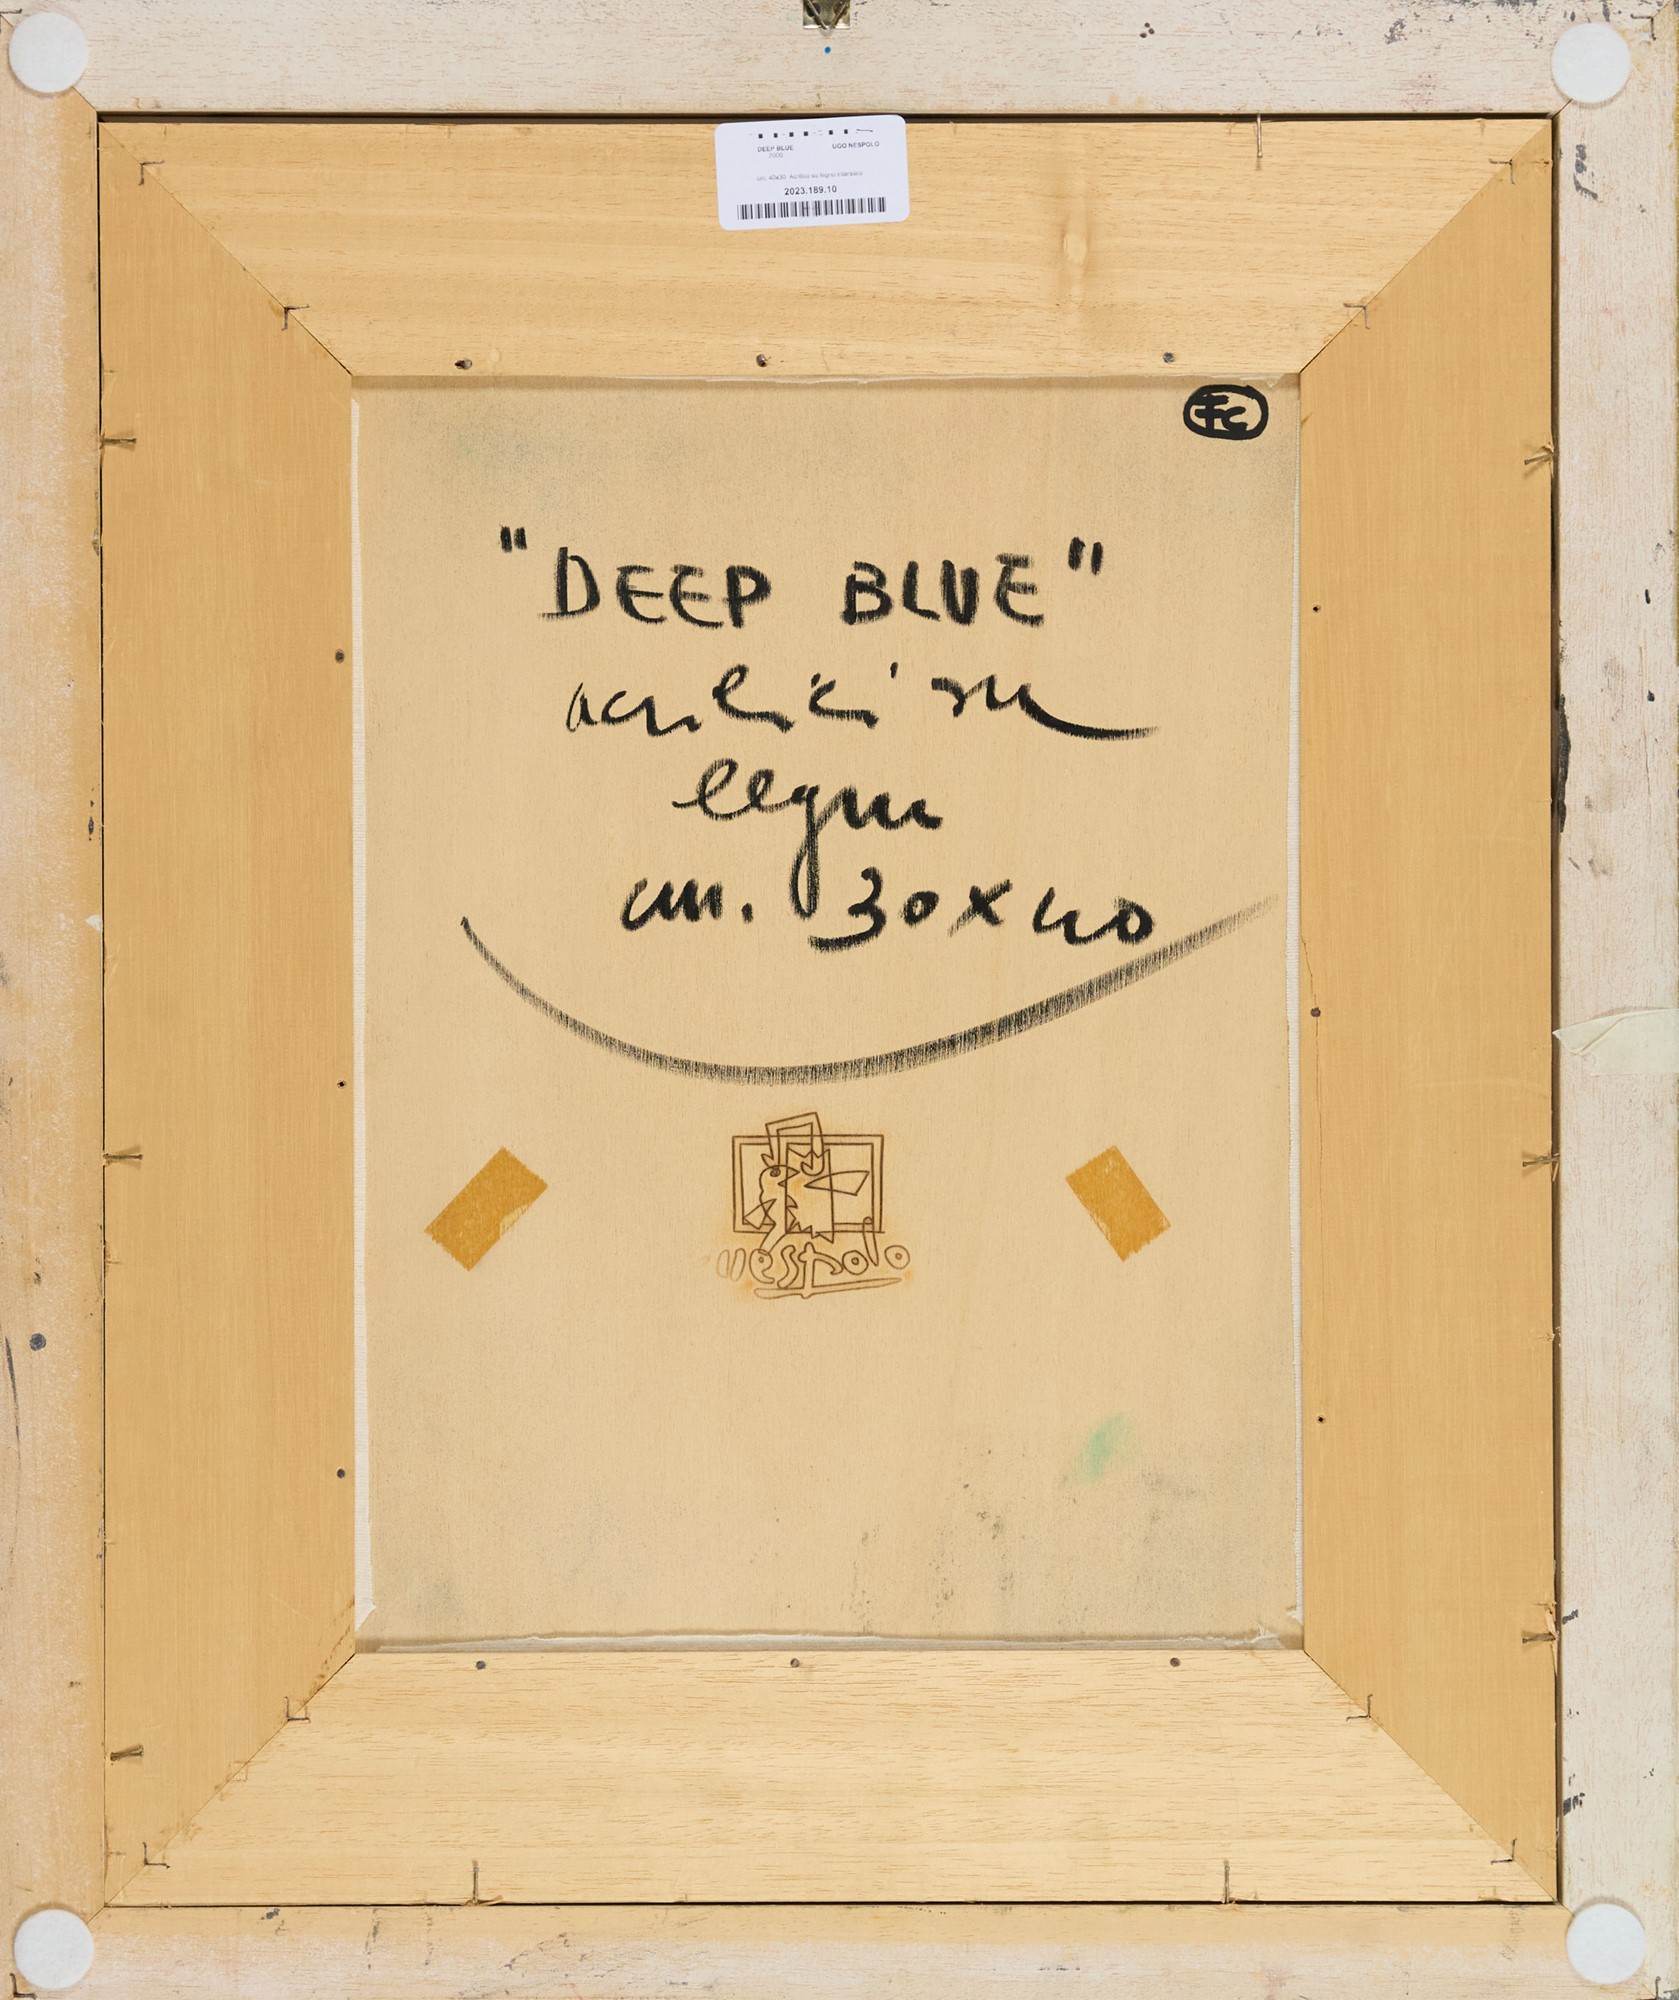 DEEP BLUE UGO NESPOLO
2000
cm. 40x30 Acrilico su legno intarsiato
2023.189.10
Fc
"DEEP BLUE"
acrilici su
legno
cm. 30x40
nespolo